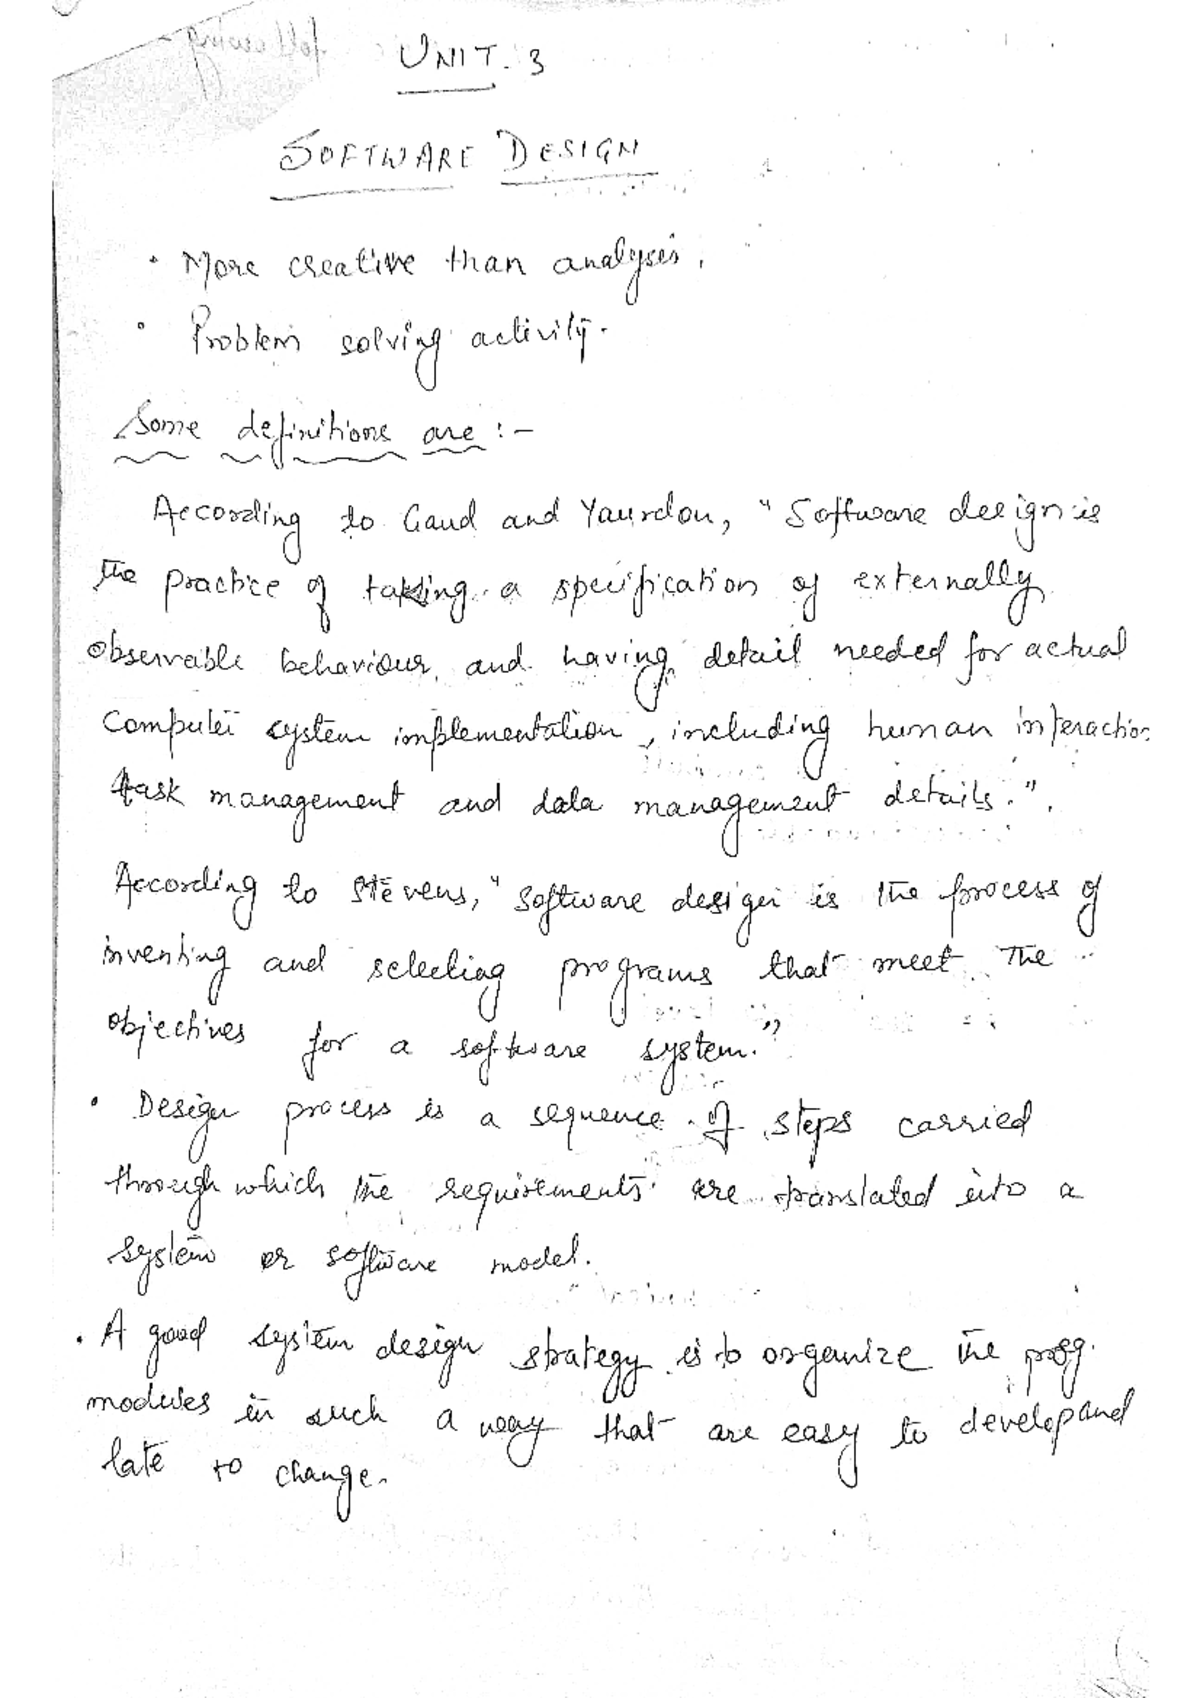 UNIT. 3
SOFTWARE DESIGN
• More creative than analysis.
• Problem solving activity.
Some definitions are :-
According to Gaud and Yaurdon, "Software design is
the practice of taking a specification of externally
observable behaviour and having detail needed for actual
Computer system implementation, including human interaction
task management and data management details.".
According to Stevens, "Software design is the process of
inventing and selecting programs that meet the
objectives for a software system."
• Design process is a sequence of steps carried
through which the requirements are translated into a
system or software model.
• A good system design strategy is to organize the prog.
modules in such a way that are easy to develop and
late to change.